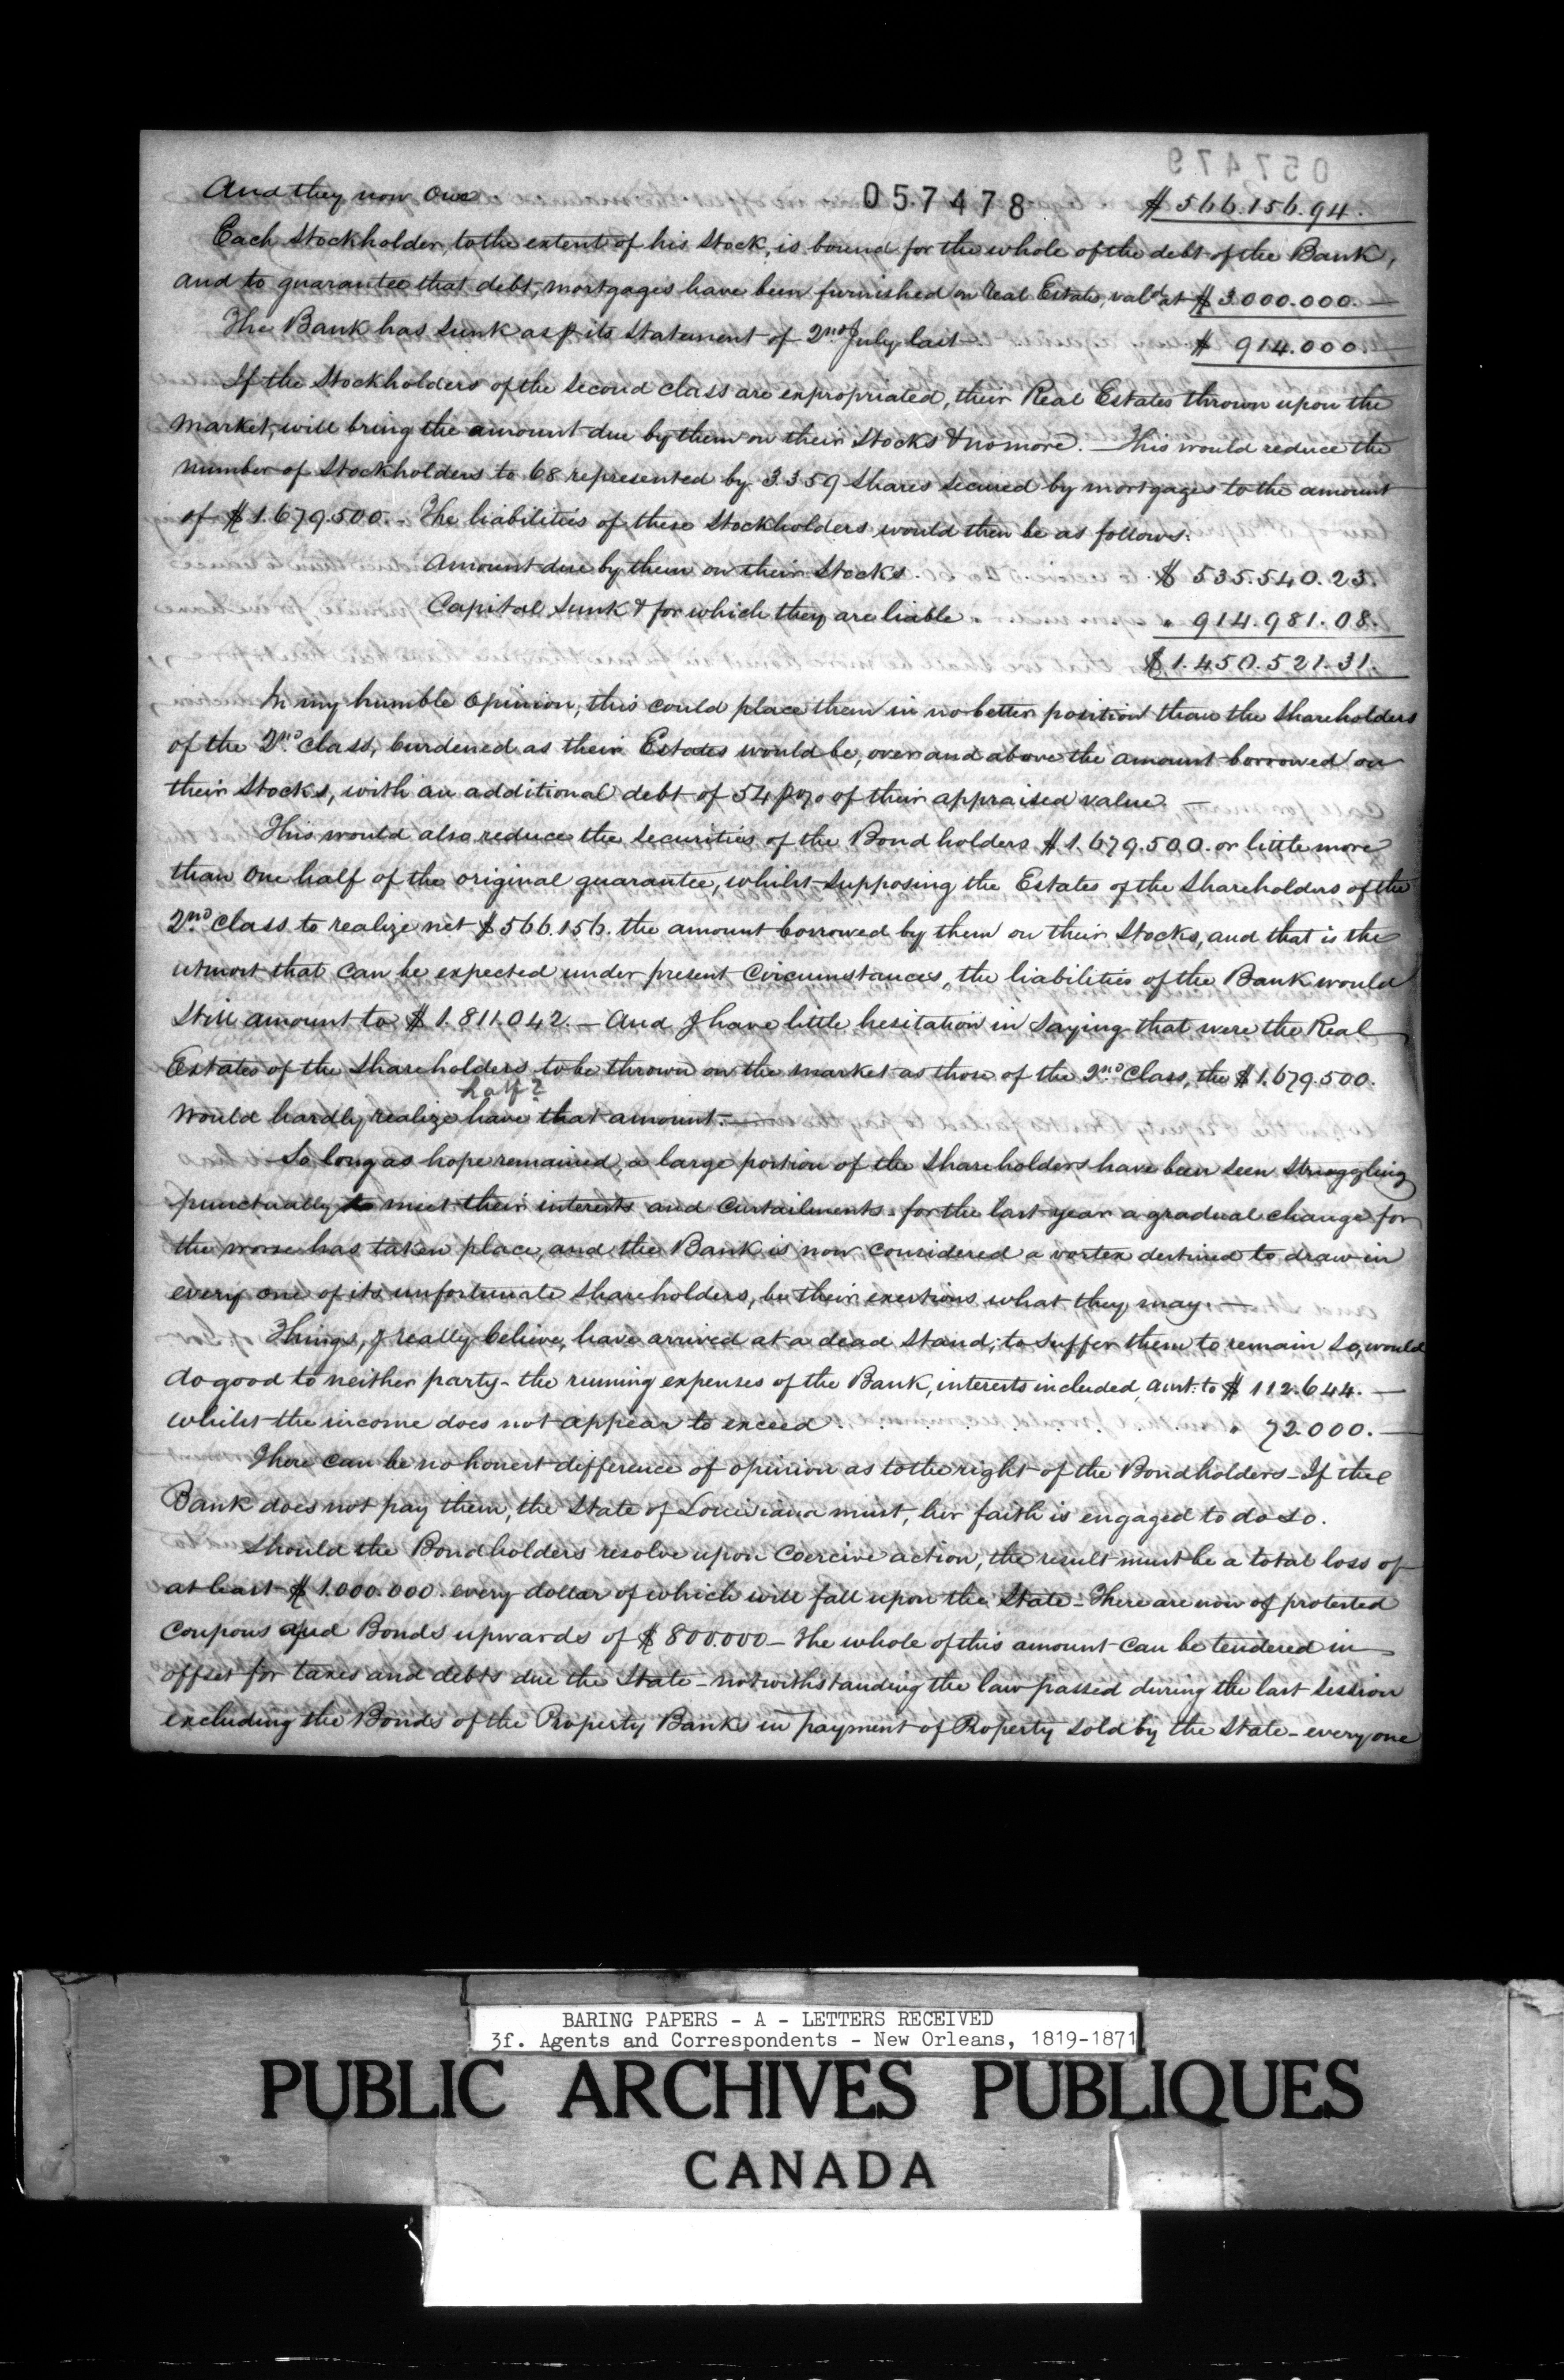 057479
057478
And they now Owe $ 566.156.94.
Each Stockholder, to the extent of his Stock, is bound for the whole of the debt of the Bank,
and to guarantee that debt, mortgages have been furnished on Real Estate, vald. at $ 3.000.000.—
The Bank has sunk as p its Statement of 2nd July last $ 914.000.
If the Stockholders of the second class are expropriated, their Real Estates thrown upon the
market, will bring the amount due by them on their Stocks & no more. — This would reduce the
number of Stockholders to 68 represented by 3359 Shares secured by mortgages to the amount
of $ 1.679.500. - The liabilities of these Stockholders would then be as follows:
Amount due by them on their Stocks . $ 535.540.23.
Capital sunk & for which they are liable " 914.981.08.
$ 1.450.521.31.
In my humble opinion, this could place them in no better position than the Shareholders
of the 2nd Class, burdened as their Estates would be, over and above the amount borrowed on
their Stocks, with an additional debt of 54 p% of their appraised value. —
This would also reduce the securities of the Bondholders $ 1.679.500. or little more
than One half of the original guarantee, whilst supposing the Estates of the Shareholders of the
2nd Class to realize net $ 566.156. the amount borrowed by them on their Stocks, and that is the
utmost that can be expected under present Circumstances, the liabilities of the Bank would
Still amount to $ 1.811.042. — And I have little hesitation in saying that were the Real
Estates of the Shareholders to be thrown on the market as those of the 2nd Class, the $ 1.679.500.
half?
would hardly realize have that amount. —
So long as hope remained, a large portion of the Shareholders have been seen struggling
punctually to meet their interests and Curtailments. for the last year a gradual change for
the worse has taken place, and the Bank is now considered a vortex destined to draw in
every one of its unfortunate Shareholders, be their exertions what they may. —
Things, I really believe, have arrived at a dead Stand; to suffer them to remain so, would
do good to neither party - the running expenses of the Bank, interests included, amt. to $ 112.644. —
whilst the income does not appear to exceed . . . . . . . " 72.000. —
There can be no honest difference of opinion as to the right of the Bondholders - If the
Bank does not pay them, the State of Louisiana must, her faith is engaged to do so.
Should the Bondholders resolve upon Coercive action, the result must be a total loss of
at least $ 1.000.000. every dollar of which will fall upon the State - There are now of protested
Coupons and Bonds upwards of $ 800.000 - The whole of this amount can be tendered in
offset for taxes and debts due the State - notwithstanding the law passed during the last session
excluding the Bonds of the Property Banks in payment of Property sold by the State - everyone
BARING PAPERS - A - LETTERS RECEIVED
3f. Agents and Correspondents - New Orleans, 1819-1871
PUBLIC ARCHIVES PUBLIQUES
CANADA